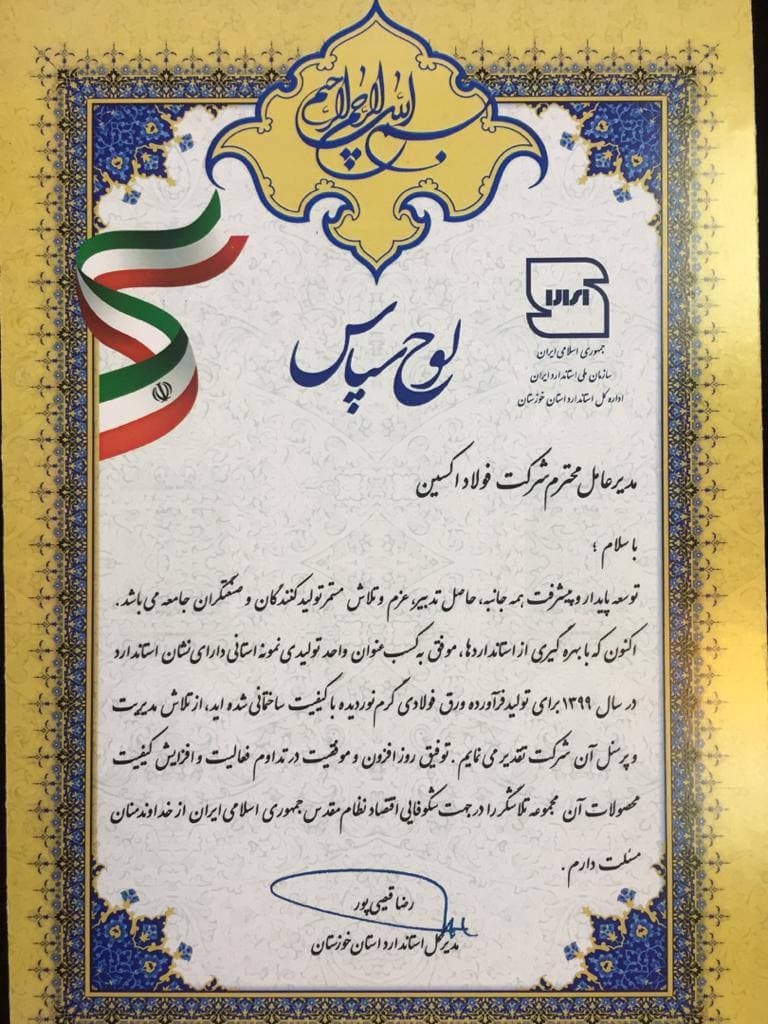 بسم الله الرحمن الرحیم
ایران
جمهوری اسلامی ایران
سازمان ملی استاندارد ایران
اداره کل استاندارد استان خوزستان
لوح سپاس
مدیر عامل محترم شرکت فولاد اکسین
با سلام ؛
توسعه پایدار و پیشرفت همه جانبه، حاصل تدبیر، عزم و تلاش مستمر تولیدکنندگان و صنعتگران جامعه می باشد.
اکنون که با بهره گیری از استانداردها، موفق به کسب عنوان واحد تولیدی نمونه استانی دارای نشان استاندارد
در سال ۱۳۹۹ برای تولید فرآورده ورق فولادی گرم نوردیده با کیفیت ساختمانی شده اید، از تلاش مدیریت
و پرسنل آن شرکت تقدیر می نمایم . توفیق روز افزون و موفقیت در تداوم فعالیت و افزایش کیفیت
محصولات آن مجموعه تلاشگر را در جهت شکوفایی اقتصاد نظام مقدس جمهوری اسلامی ایران از خداوند منان
مسئلت دارم .
رضا قیصی پور
مدیر کل استاندارد استان خوزستان